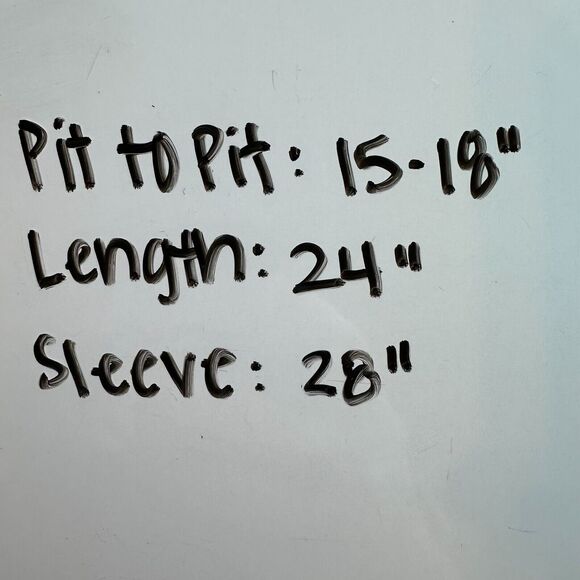 Pit to Pit: 15-18"
Length: 24"
Sleeve: 28"